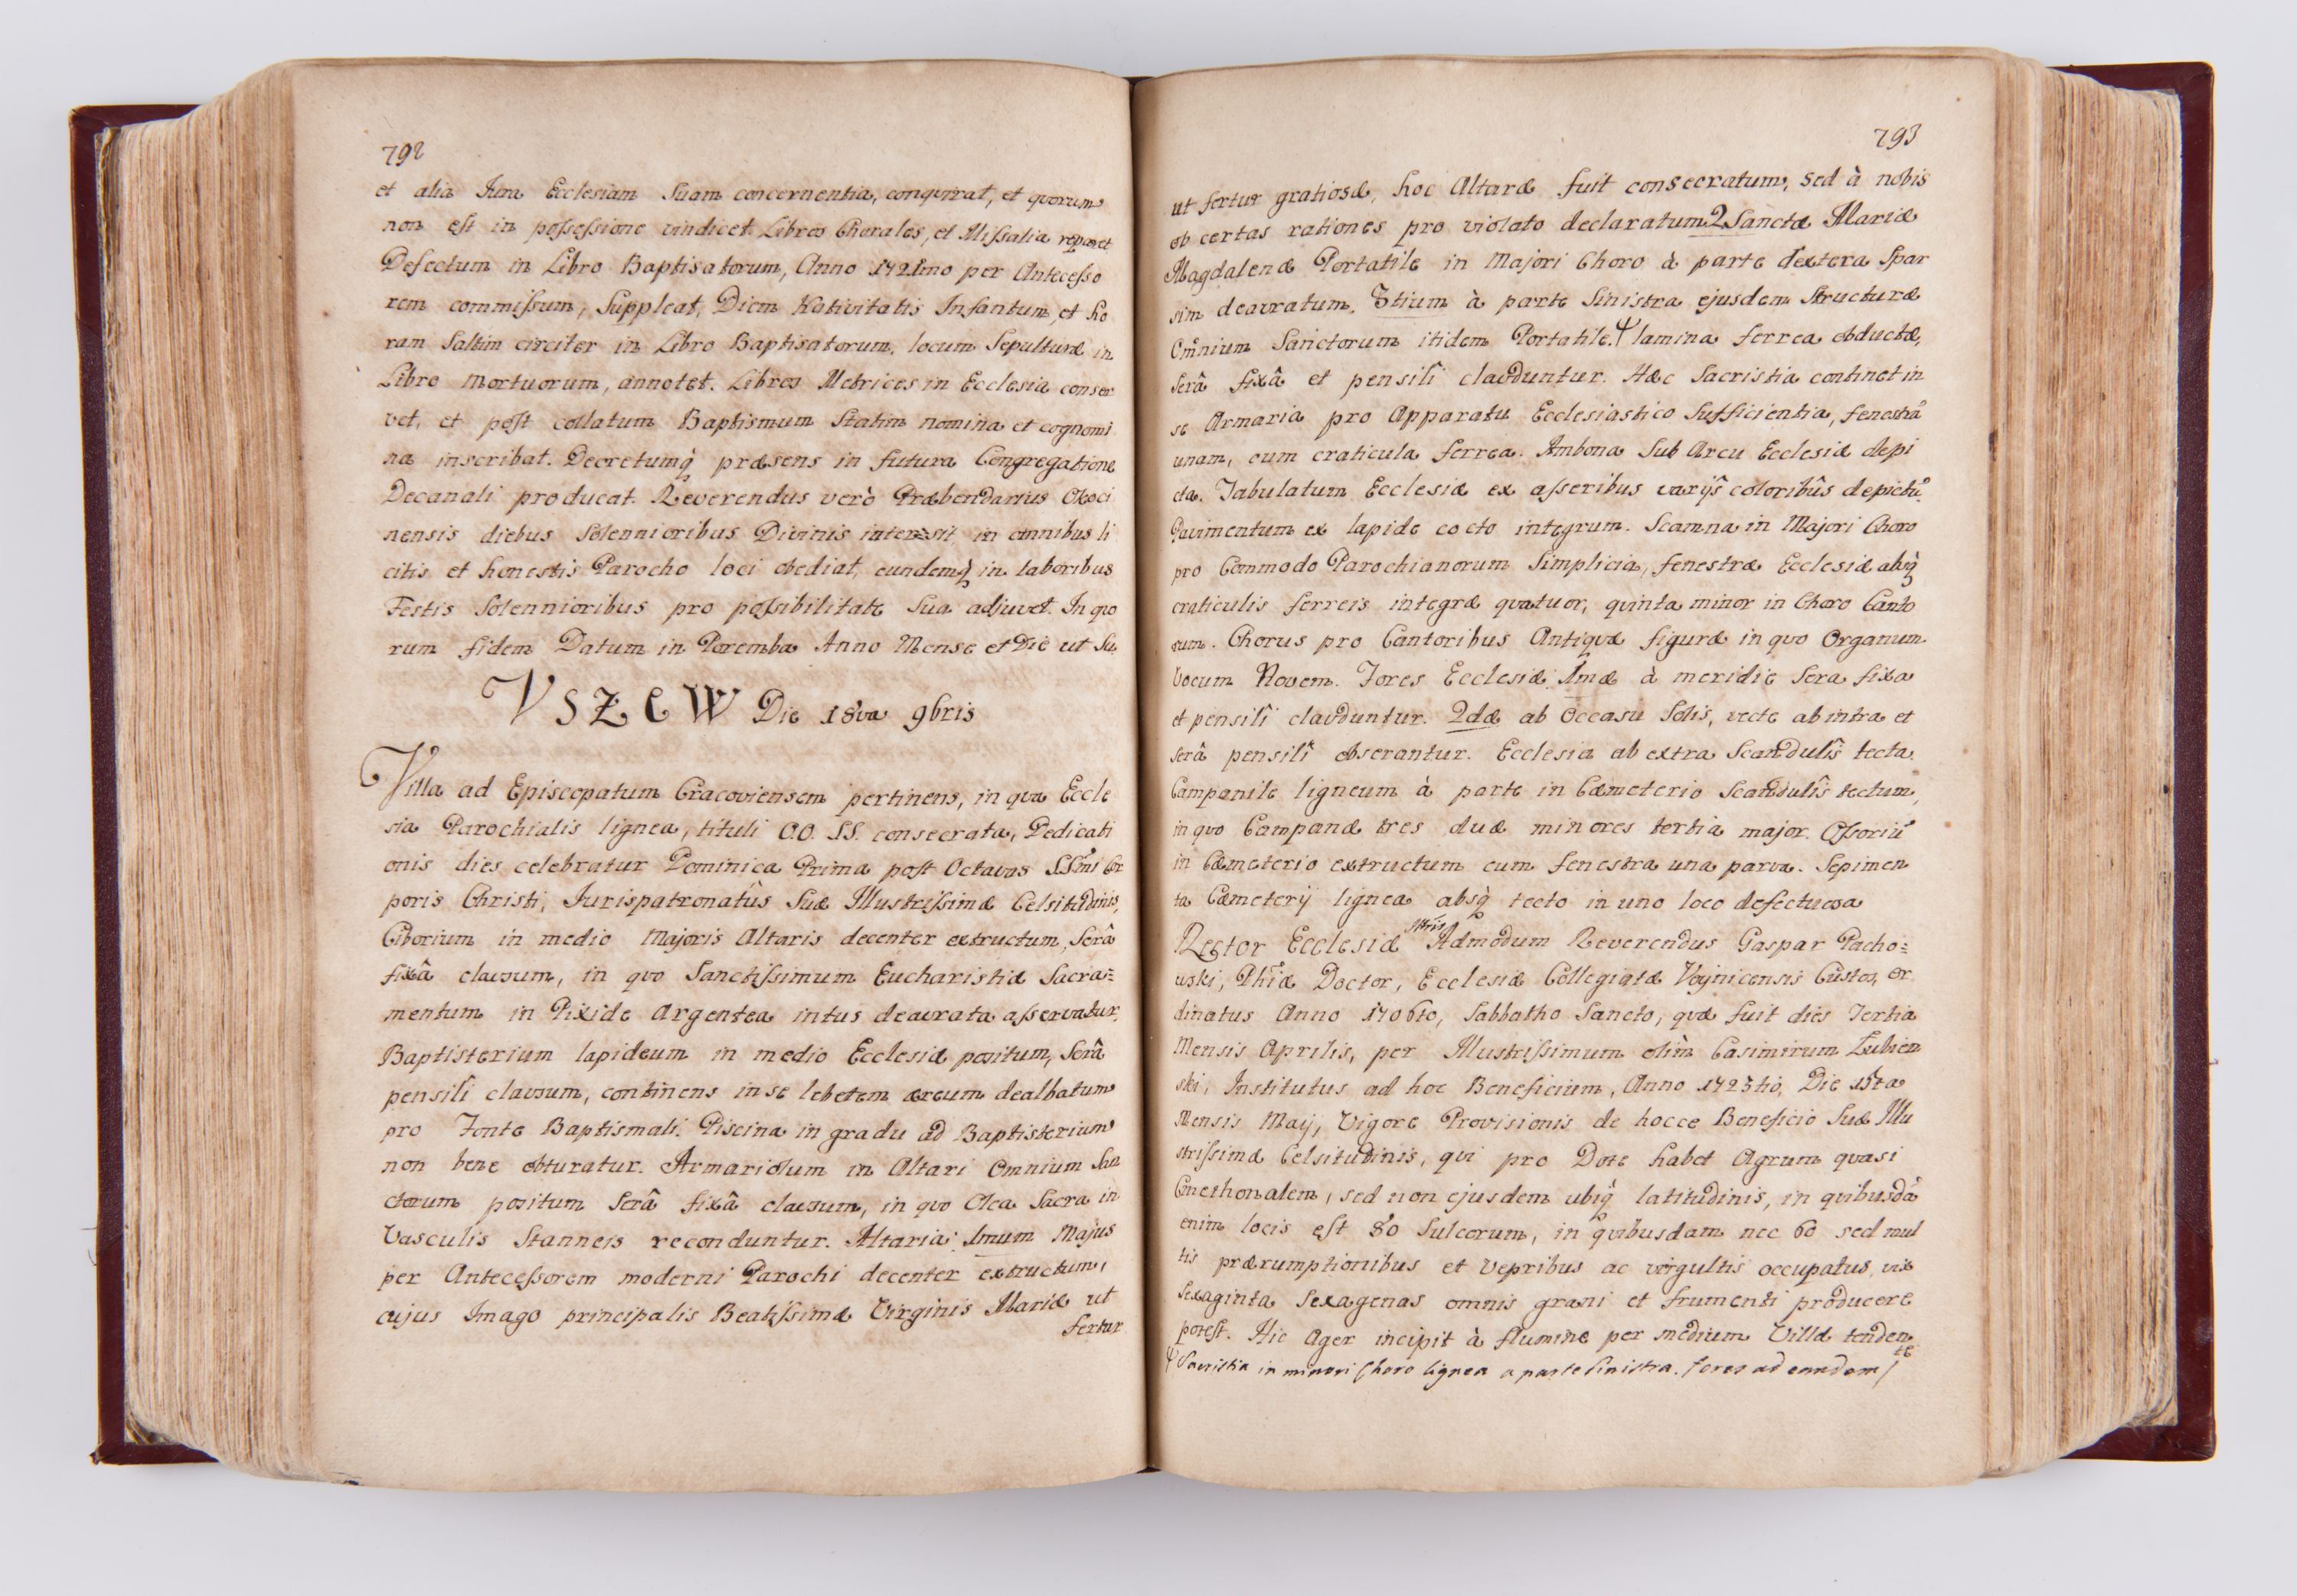 792
et alia Iura Ecclesiam Suam concernentia, conquirat, et quorum
non est in possessione vindicet. Libros Chorales, et Missalia reparet
Defectum in Libro Baptisatorum, Anno 1721mo per Antecesso
rem commissum, Suppleat, Diem Nativitatis Infantum, et ho
ram Saltim circiter in Libro Baptisatorum, locum Sepulturæ in
Libro Mortuorum, annotet. Libros Metrices in Ecclesia conser
vet, et post collatum Baptismum Statim nomina et cognomi
na inscribat. Decretumq̀ præsens in futura Congregatione
Decanali producat. Reverendus verò Præbendarius Okoci
nensis diebus Solennioribus Divinis intersit, in omnibus li
citis et honestis Parocho loci obediat, eundemq̀ in laboribus
Festis Solennioribus pro possibilitate Sua adjuvet. In quo
rum fidem Datum in Poremba Anno Mense et Die ut Su.
VSZEW Die 18va 9bris
Villa ad Episcopatum Cracoviensem pertinens, in qua Eccle
sia Parochialis lignea, tituli O.O. S.S. consecrata, Dedicati
onis dies celebratur Dominica Prima post Octavas SS̃mi Cor
poris Christi, Iurispatronatûs Suæ Illustrissimæ Celsitudinis,
Ciborium in medio Majoris Altaris decenter extructum, Serâ
fixâ clausum, in quo Sanctissimum Eucharistiæ Sacra=
mentum in Pixide Argentea intus deaurata asservatur,
Baptisterium lapideum in medio Ecclesiæ positum, Serâ
pensilî clausum, continens in se lebetem æreum dealbatum
pro Fonte Baptismali. Piscina in gradu ad Baptisterium
non bene obturatur. Armariolum in Altari Omnium San
ctorum positum Serâ fixâ clausum, in quo Olea Sacra in
Vasculis Stanneis reconduntur. Altaria: 1mum Majus
per Antecessorem moderni Parochi decenter extructum,
cujus Imago principalis Beatissimæ Virginis Mariæ ut
fertur
793
ut fertur gratiosæ, hoc Altaræ fuit consecratum, sed à nobis
ob certas rationes pro violato declaratum 2 Sanctæ Mariæ
Magdalenæ Portatile in Majori Choro à parte dextera Spar
sim deauratum. 3tium à parte Sinistra ejusdem Structuræ
Omñium Sanctorum itidem Portatile. Ψ lamina ferrea obductæ,
Serâ fixâ et pensilî clauduntur. Hæc Sacristia continet in
se Armaria pro Apparatu Ecclesiastico Sufficientia, fenestrã
unam, cum craticula ferrea. Ambona Sub Arcu Ecclesiæ depi
cta. Tabulatum Ecclesiæ ex asseribus varijs coloribûs depictũ.
Pavimentum ex lapide cocto integrum. Scamna in Majori Choro
pro Commodo Parochianorum Simplicia, fenestræ Ecclesiæ absq̀
craticulis ferreis integræ quatuor, quinta minor in Choro Canto
rum. Chorus pro Cantoribus Antiquæ figuræ in quo Organum
Vocum Novem. Fores Ecclesiæ 1mæ à meridie Sera fixa
et pensilî clauduntur. 2dæ ab Occasu Solis, vecte ab intra et
serâ pensilî obserantur. Ecclesia ab extra Scandulîs tecta.
Campanile ligneum à parte in Cæmeterio Scandulîs tectum,
in quo Campanæ tres duæ minores tertia major. Ossoriũ
in Cæmeterio extructum cum fenestra una parva. Sepimen
ta Cæmeterij lignea absq̀ tecto in uno loco defectuosa
Rector Ecclesiæ Admodum Reverendus Gaspar Pacho=
wski, Phĩæ Doctor, Ecclesiæ Collegiatæ Voynicensis Custos, or
dinatus Anno 1706to, Sabbatho Sancto, quæ fuit dies Tertia
Mensis Aprilis, per Illustrissimum olim Casimirum Łubien
ski, Institutus ad hoc Beneficium, Anno 1723tio, Die 15ta
Mensis Maij, Vigore Provisionis de hocce Beneficio Suæ Illu
strissimæ Celsitudinis, qui pro Dote habet Agrum quasi
Cmethonalem, sed non ejusdem ubiq̀ latitudinis, in quibusdã
enim locis est 80 Sulcorum, in quibusdam nec 60 sed mul
tis prærumptionibus et vepribus ac virgultis occupatus, vix
Sexaginta Sexagenas omnis grani et frumenti producere
potest. Hic Ager incipit à flumine per medium Villæ tenden
te
Ψ Sacristia in minori Choro lignea a parte Sinistra. fores ad eandem/